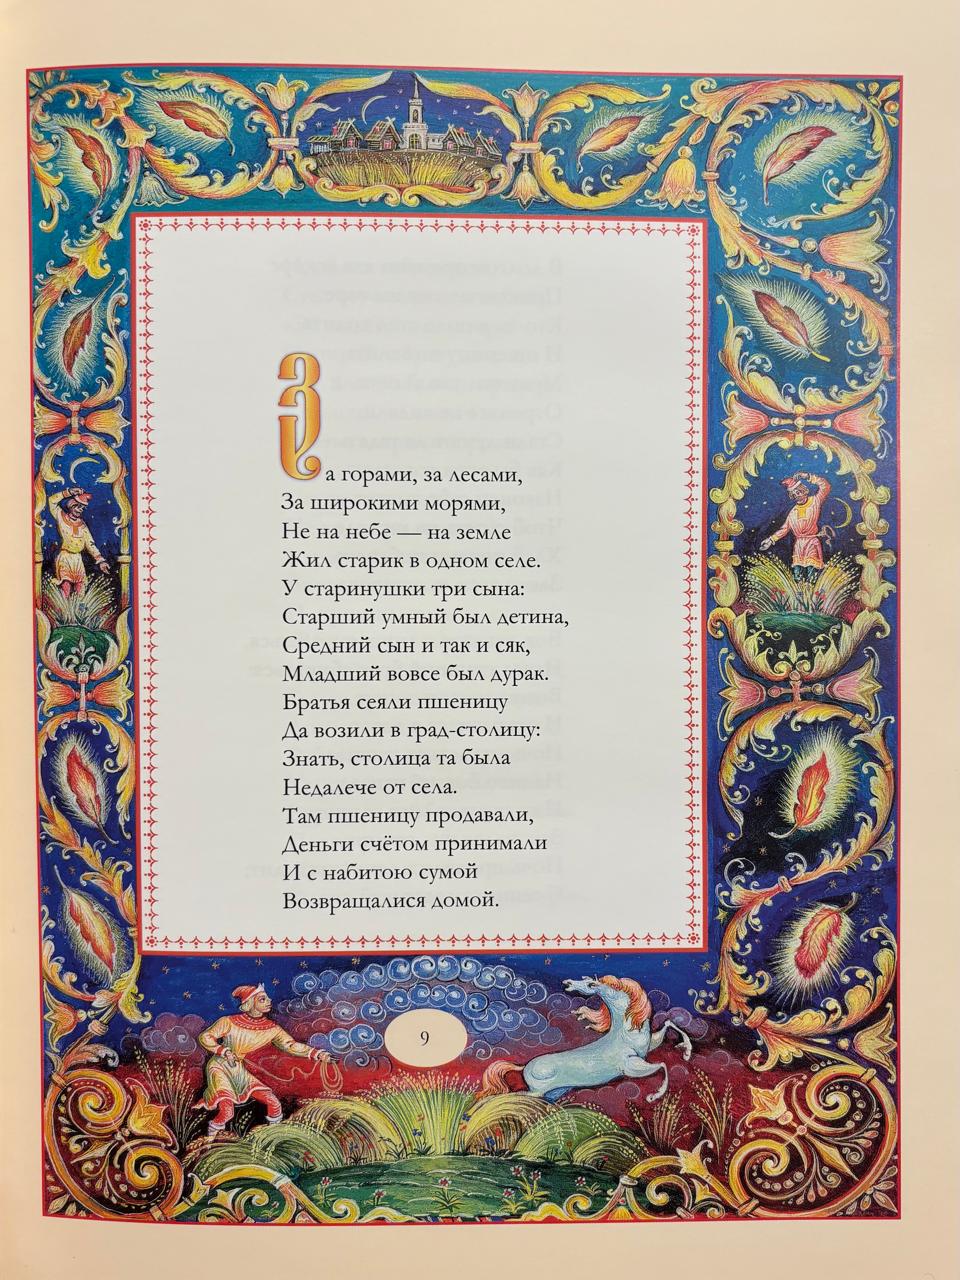 За горами, за лесами,
За широкими морями,
Не на небе — на земле
Жил старик в одном селе.
У старинушки три сына:
Старший умный был детина,
Средний сын и так и сяк,
Младший вовсе был дурак.
Братья сеяли пшеницу
Да возили в град-столицу:
Знать, столица та была
Недалече от села.
Там пшеницу продавали,
Деньги счётом принимали
И с набитою сумой
Возвращалися домой.
9